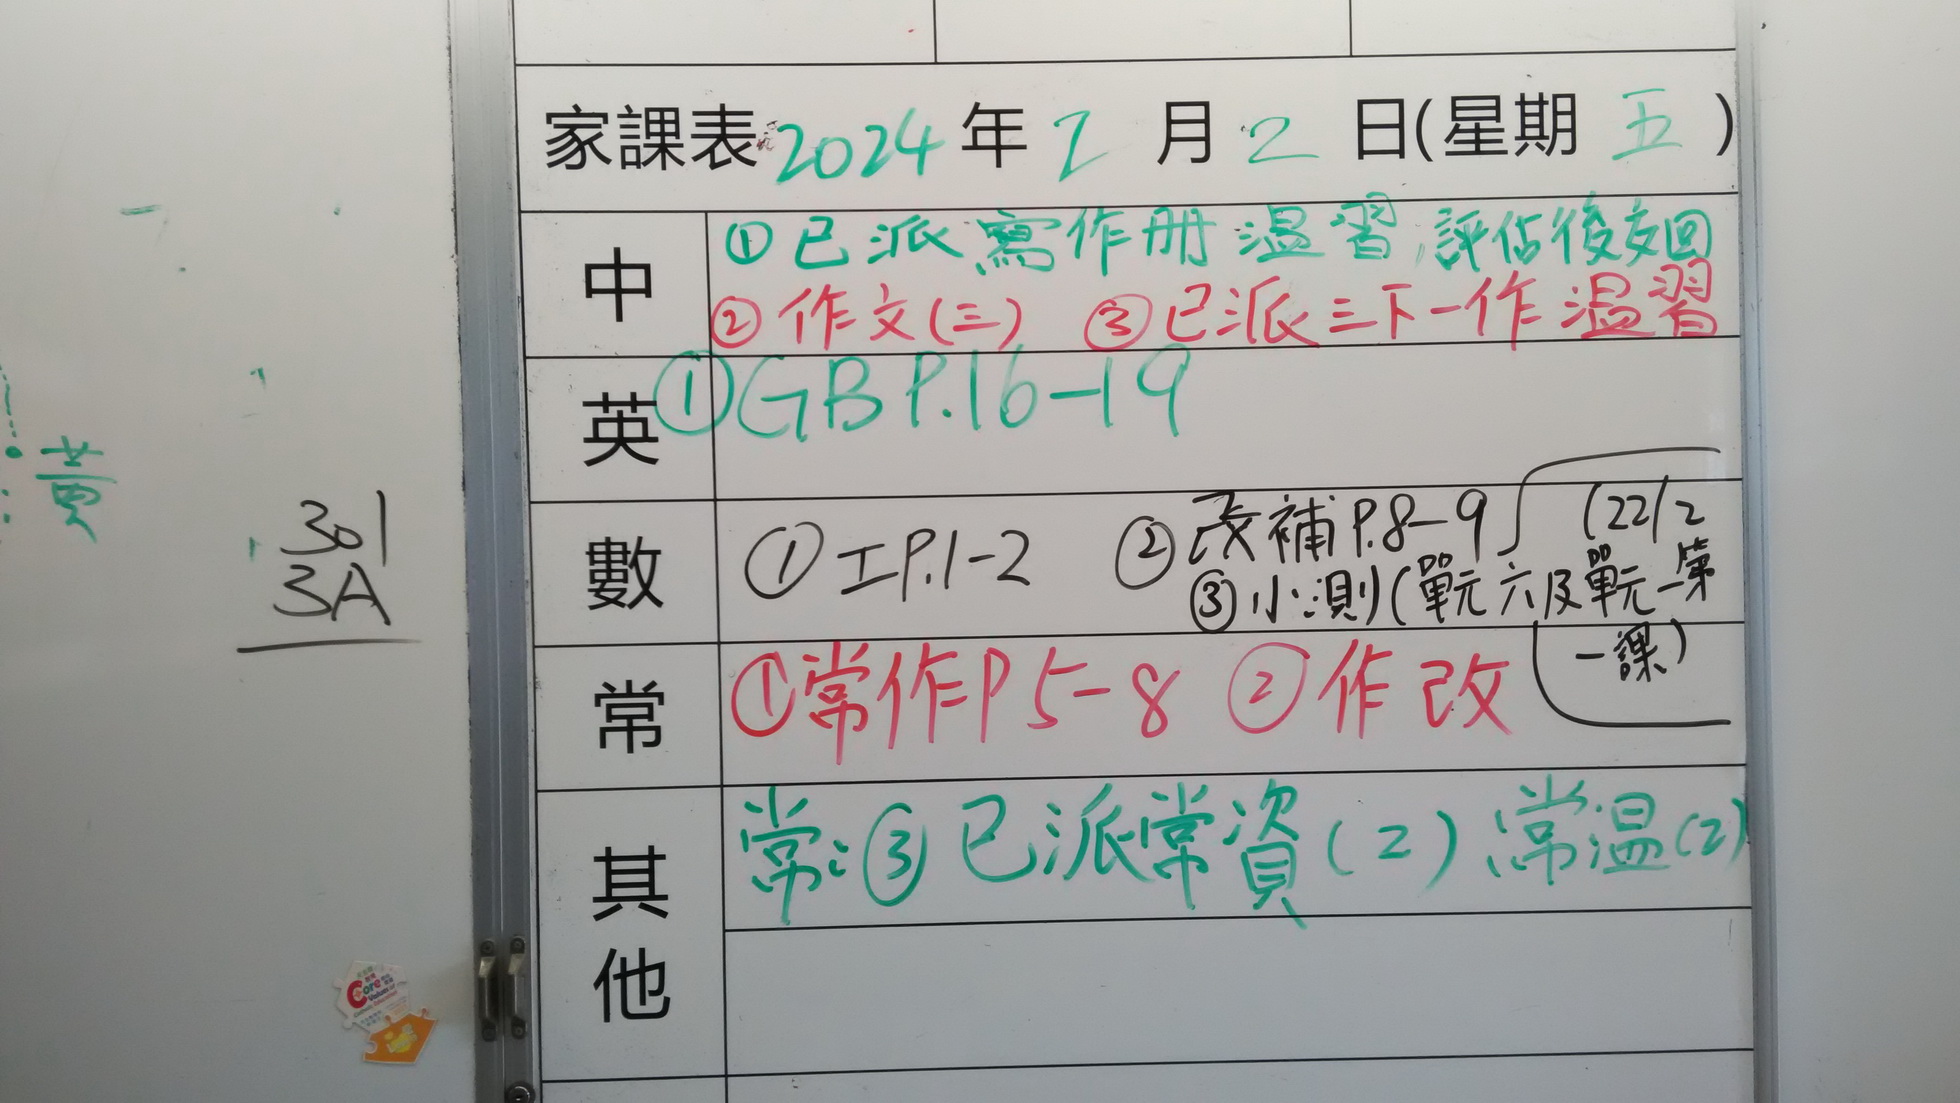 家課表 2024 年 2 月 2 日(星期 五 )
中
① 已派寫作冊溫習,評估後交回
② 作文(三) ③ 已派三下一作溫習
英
① GB P.16-19
數
① 工P.1-2 ② 改補P.8-9
③ 小測(單元六及單元一第一課) (22/2
常
① 常作P5-8 ② 作改
其他
常:③ 已派常資(2) 常温(2)
黃
301
3A
Core
Values